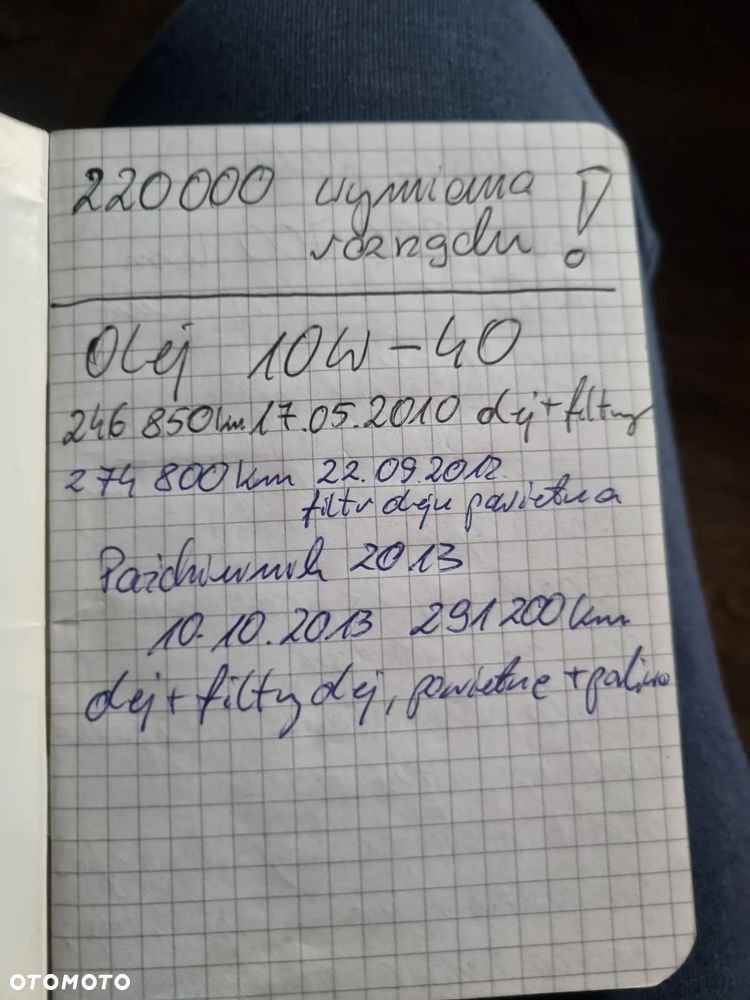 220000 wymiana !
rozrządu
Olej 10W-40
246 850km 17.05.2010 olej + filtry
274 800km 22.09.2012
filtr oleju powietrza
Październik 2013
10.10.2013 291 200km
olej + filtry olej, powietrze + paliwo
OTOMOTO